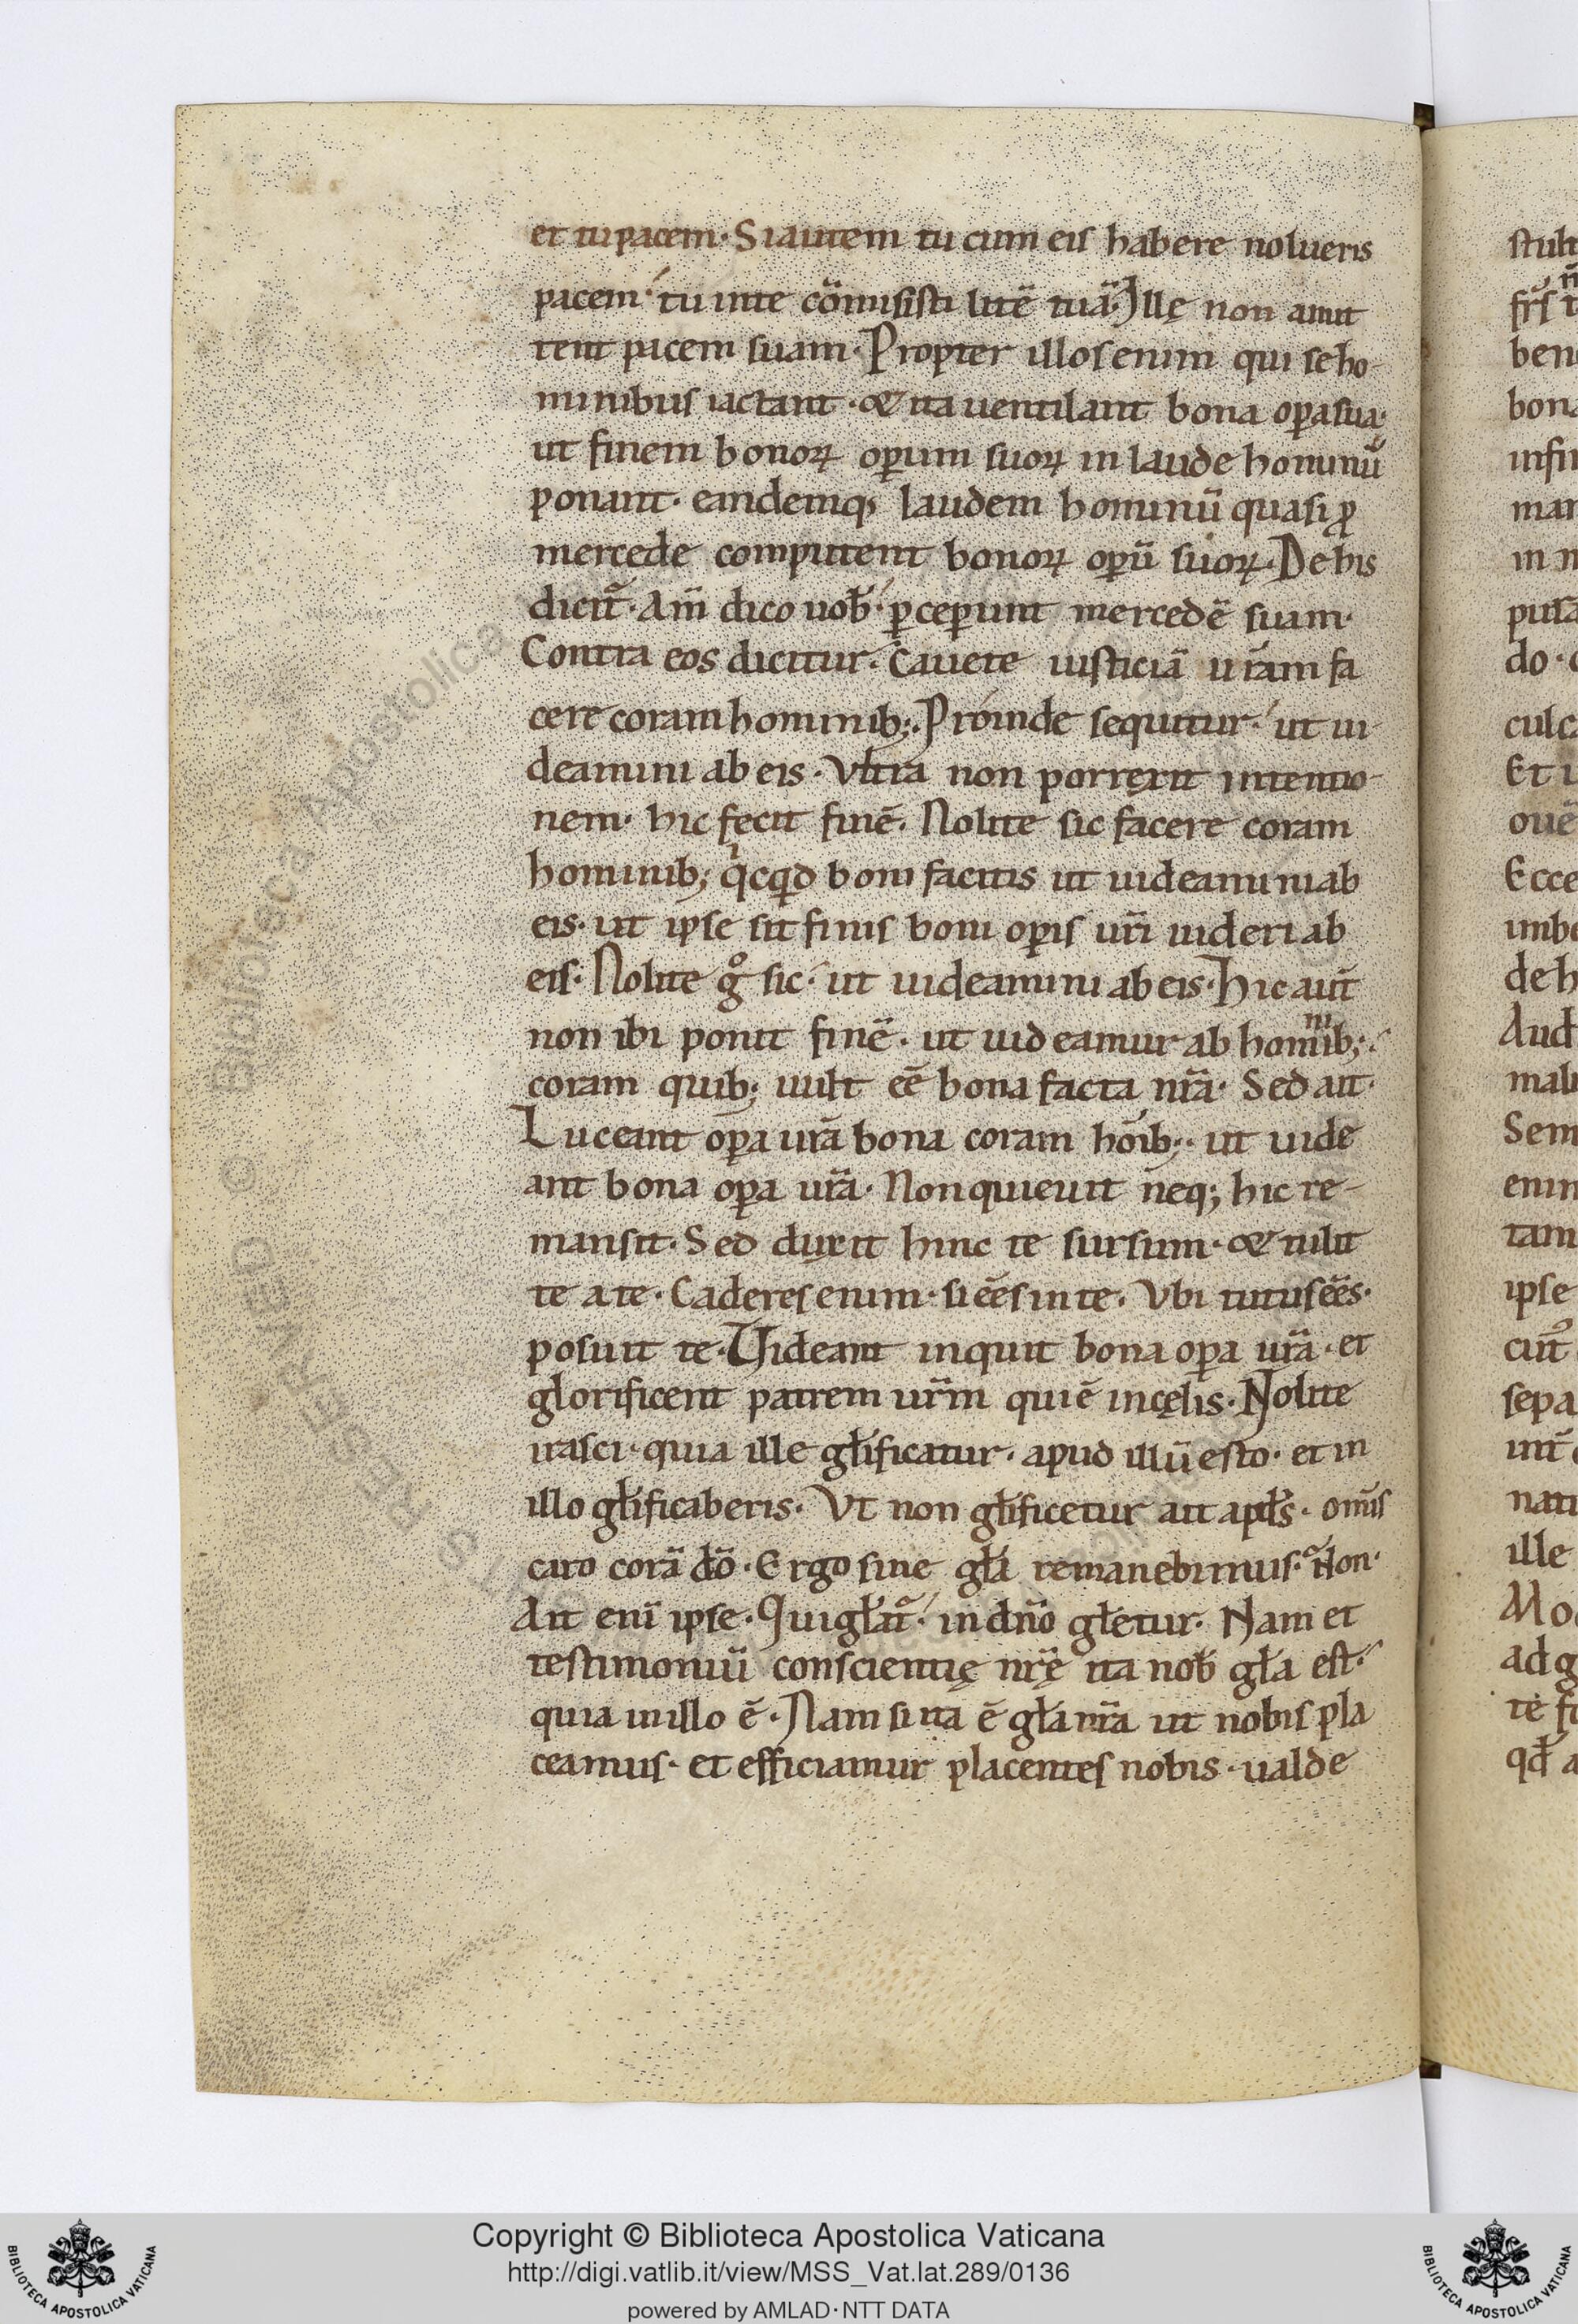 et tu pacem. Si autem tu cum eis habere nolueris
pacem. tu in te cōmisisti litē tuā. Illę non amit
tent pacem suam. Propter illos enim qui se ho-
minibus iactant. & ita uentilant bona oꝑa sua.
ut finem bonoꝝ oꝑum suoꝝ in laude hominū
ponant. eandemq; laudem hominū quasi ꝓ
mercede computent bonoꝝ oꝑū suoꝝ. De his
dicit̄. Am̄ dico uob̄. ꝑceꝑunt mercedē suam.
Contra eos dicitur. Cauete iusticiā ur̄am fa
cere coram hominib;. Proinde sequitur. ut ui-
deamini ab eis. Vltra non porrexit intentio-
nem. hic fecit finē. Nolite sic facere coram
hominib; qͥcqͥd boni facitis ut uideamini ab
eis. ut ipse sit finis boni oꝑis ur̄i uideri ab
eis. Nolite gͦ sic. ut uideamini ab eis. Hic aut̄
non ibi ponit finē. ut uideamur ab hominib;.
coram quib; uult eē bona facta nr̄a. Sed ait.
Luceant oꝑa ur̄a bona coram hōib;. ut uide
ant bona oꝑa ur̄a. Non quieuit neq; hic re-
mansit. Sed duxit hinc te sursum. & tulit
te a te. Caderes enim. si eēs in te. Vbi tutus eēs.
posuit te. Videant inquit bona oꝑa ur̄a. et
glorificent patrem ur̄m qui ē in cęlis. Nolite
irasci. quia ille głificatur. apud illū esto. et in
illo głificaberis. Vt non głificetur ait apłs. omīs
caro corā dō. Ergo sine gła remanebimus. Non.
Ait enī ipse. Qui głat̄. in dn̄o głetur. Nam et
testimoniū conscientię nr̄ę ita nob̄ gła est.
quia in illo ē. Nam si ita ē gła nr̄a ut nobis pla
ceamus. et efficiamur placentes nobis. ualde
stult
ben
bona
man
do.
culc
Et
ouē
Ecce
de h
Aud
Sem
enim
tam
ipse
sepa
nati
ille
ad g
te
Copyright © Biblioteca Apostolica Vaticana
http://digi.vatlib.it/view/MSS_Vat.lat.289/0136
powered by AMLAD·NTT DATA
BIBLIOTECA APOSTOLICA VATICANA
BIBLIOTECA APOSTOLICA VATICANA